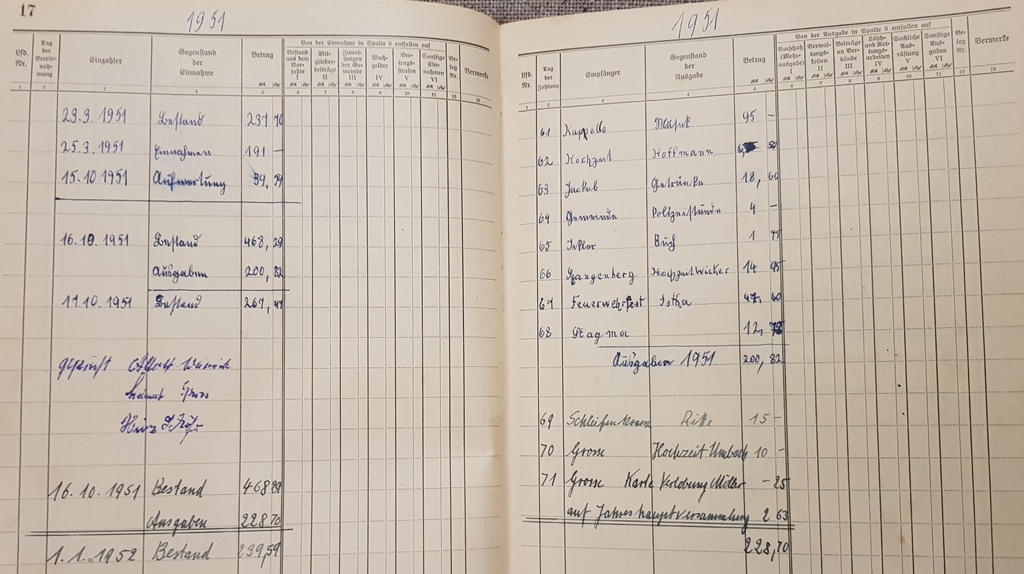 17
1951
Lfd. Nr. Tag der Vereinnahmung Einzahler Gegenstand der Einnahme Betrag Von der Einnahme in Spalte 5 entfallen auf Bemerke
Bestand aus dem Vorjahre I Mitgliederbeiträge II Zuwendungen der Gemeinde III IV Vertragsstrafen V Sonstige Einnahmen VI Beleg Nr.
1 2 3 4 5 6 7 8 9 10 11 12 13
23.3.1951 Bestand 237 70
25.3.1951 Einnahmen 191 –
15.10.1951 Aufwertung 39,
16.10.1951 Bestand 468, 29
Ausgaben 200, 82
17.10.1951 Bestand 267, 47
geprüft
16.10.1951 Bestand 468 29
Ausgaben 228 70
1.1.1952 Bestand 239,59
1951
Lfd. Nr. Tag der Zahlung Empfänger Gegenstand der Ausgabe Betrag Von der Ausgabe in Spalte 5 entfallen auf Beleg Nr. Bemerke
Vorschuß (Mehrausgabe) I Verwaltungskosten II Beiträge an Verbände III Lösch- und Rettungsarbeiten IV Sachliche Ausrüstung V Sonstige Ausgaben VI
1 2 3 4 5 6 7 8 9 10 11 12 13
61 Kappelle Musik 95 –
62 Hochzeit Hoffmann
63 Jackob Getränke 18, 60
64 Gemeinde Polizeistunde 4 –
65 Buch 1
66 Spangenberg Hochzeit Wicker 14 95
67 Feuerwehrfest Istha 47, 60
68 Stagma 12,
Ausgaben 1951 200, 82
69 Schleifenkranz 15 –
70 Grosse Hochzeit Umbach 10 –
71 Grosse Karte Verlobung Müller – 25
auf Jahreshauptversammlung 2 63
228,70